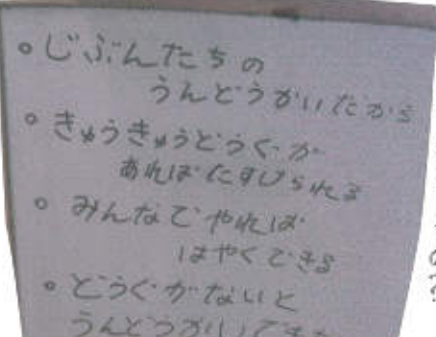 ○じぶんたちの
うんどうかいだから
○きゅうきゅうどうぐが
あればたすけられる
○みんなでやれば
はやくできる
○どうぐがないと
うんどうかいができ